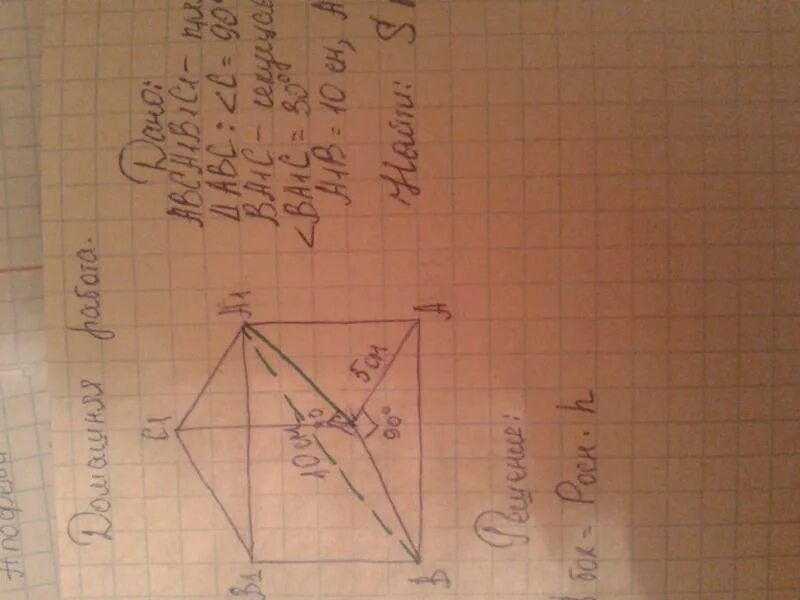 Домашняя работа.
Дано:
ABCA1B1C1 -
ΔABC: <C = 90°
BA1C -
<BA1C = 30°
A1B = 10 см, A
Найти: S
C1
B1
A1
10 см
30
5 см
90°
B
A
Решение:
бок = Pосн. h